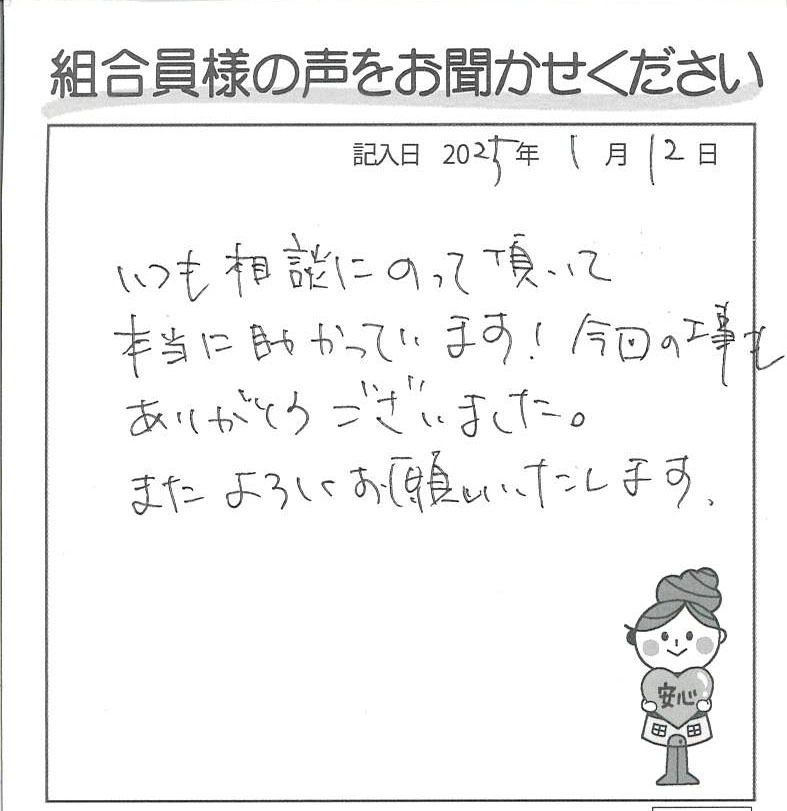 組合員様の声をお聞かせください
記入日 2025年 1月 12日
いつも相談にのって頂いて
本当に助かっています！今回の工事も
ありがとうございました。
またよろしくお願いいたします。
安心